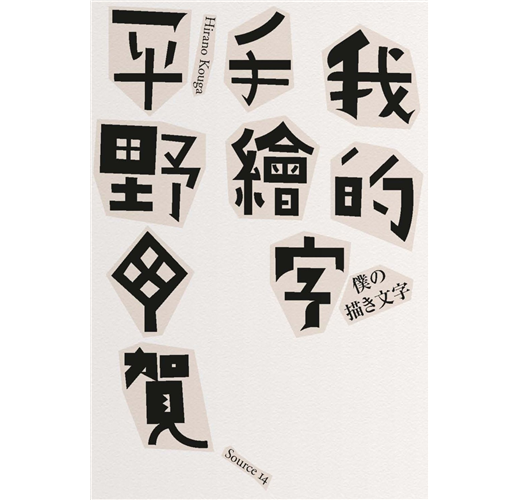 我的
手繪字
僕の
描き文字
平野甲賀
Hirano Kouga
Source 14